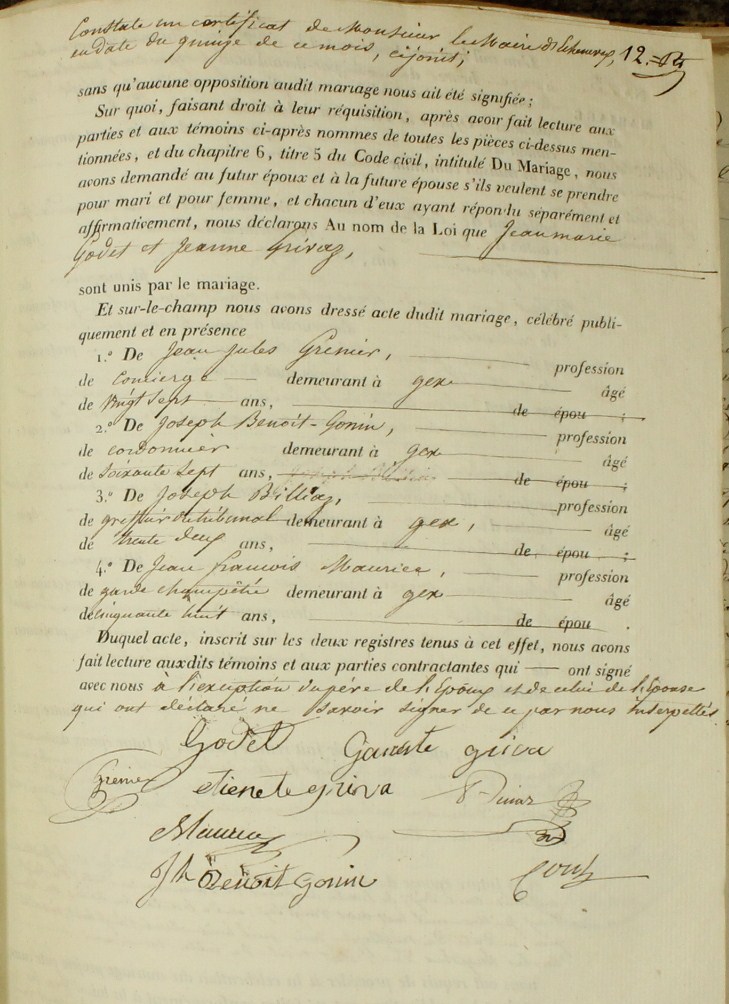 Constate un certificat de Monsieur le Maire d'Echenevex, 12.
en date du quinze de ce mois, ci joint;
sans qu'aucune opposition audit mariage nous ait été signifiée;
Sur quoi, faisant droit à leur réquisition, après avoir fait lecture aux
parties et aux témoins ci-après nommés de toutes les pièces ci-dessus men-
tionnées, et du chapitre 6, titre 5 du Code civil, intitulé Du Mariage, nous
avons demandé au futur époux et à la future épouse s'ils veulent se prendre
pour mari et pour femme, et chacun d'eux ayant répondu séparément et
affirmativement, nous déclarons Au nom de la Loi que Jean marie
Godet et Jeanne Grivaz,
sont unis par le mariage.
Et sur-le-champ nous avons dressé acte dudit mariage, célébré publi-
quement et en présence
1.° De Jean Jules Grenier, profession
de Concierge demeurant à gex âgé
de vingt sept ans, de épou ;
2.° De Joseph Benoit-Gonin, profession
de cordonnier demeurant à gex âgé
de Soixante Sept ans, de épou ;
3.° De Joseph Billiaz, profession
de greffier du tribunal demeurant à gex, âgé
de trente deux ans, de épou ;
4.° De Jean françois Maurice, profession
de garde champêtre demeurant à gex âgé
de cinquante huit ans, de épou .
Duquel acte, inscrit sur les deux registres tenus à cet effet, nous avons
fait lecture auxdits témoins et aux parties contractantes qui ont signé
avec nous à l'exception du père de l'Epoux et de celui de l'Epouse
qui ont déclaré ne Savoir Signer de ce par nous interpellés.
Godet griva
Grenier etienete griva
Maurice
Jh Benoit Gonin